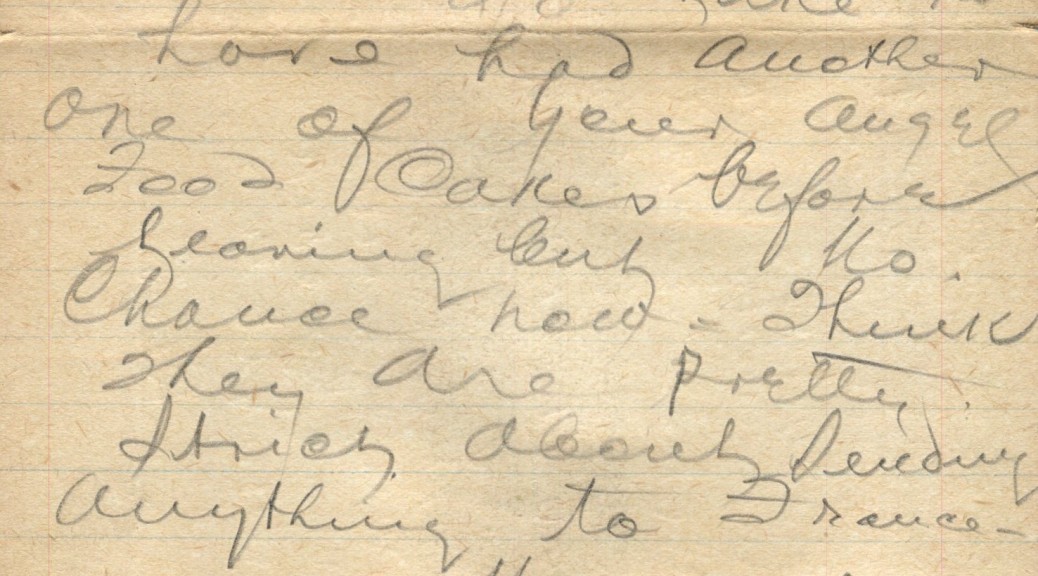 have had another
one of your Angel
Food Cakes before
leaving but No.
Chance now - Think
They are pretty
Strict about Sending
Anything to France -